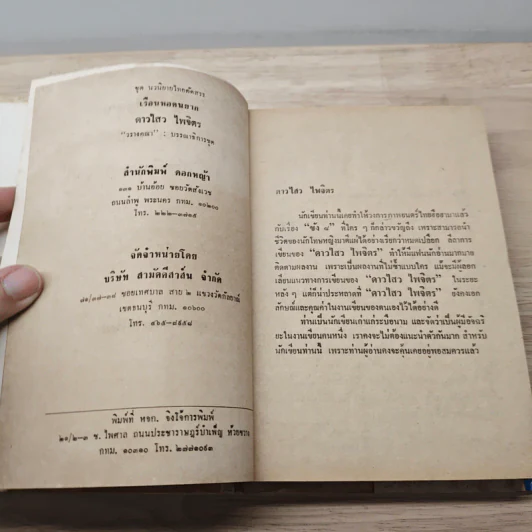 ชุด นวนิยายไทยคัดสรร
เรือนหอคนยาก
ดาวไสว ไพจิตร
"วราคณา" : บรรณาธิการชุด
สำนักพิมพ์ ดอกหญ้า
๓๓๑ บ้านย้อย ซอยวัดสังเวช
ถนนลำพู พระนคร กทม. ๑๐๒๐๐
โทร. ๒๒๒-๓๗๑๕
จัดจำหน่ายโดย
บริษัท สามัคคีสาส์น จำกัด
ซอยเทศบาล สาย ๒ แขวงวัดกัลยาณ์
เขตธนบุรี กทม. ๑๐๖๐๐
โทร.
พิมพ์ที่ หจก. จิงโจ้การพิมพ์
๒๑/๒-๓ ซ. ไพศาล ถนนประชาราษฎร์บำเพ็ญ ห้วยขวาง
กทม. ๑๐๓๑๐ โทร. ๒๗๗๑๐๙๓
ดาวไสว ไพจิตร
นักเขียนท่านนี้เคยทำให้วงการภาพยนตร์ไทยฮือฮามาแล้ว
กับเรื่อง "ขัง ๘" ที่ใคร ๆ ก็กล่าวขวัญถึง เพราะสามารถนำ
ชีวิตของนักโทษหญิงมาตีแผ่ได้อย่างเรียกว่าหมดเปลือก ลีลาการ
เขียนของ "ดาวไสว ไพจิตร" ทำให้มีแฟนนักอ่านมากมาย
ติดตามผลงาน เพราะเป็นผลงานที่ไม่ซ้ำแบบใคร แม้จะมีผู้ลอก
เลียนแนวทางการเขียนของ "ดาวไสว ไพจิตร" ในระยะ
หลัง ๆ แต่ก็น่าประหลาดที่ "ดาวไสว ไพจิตร" ยังคงเอก
ลักษณ์และคุณค่าในงานเขียนของตนเองไว้ได้อย่างดี
ท่านเป็นนักเขียนเก่าแก่กระบือนาม และจัดว่าเป็นผู้มีอัจฉริ
ยะในงานเขียนคนหนึ่ง เราคงจะไม่ต้องแนะนำตัวกันมาก สำหรับ
นักเขียนท่านนี้ เพราะท่านผู้อ่านคงจะคุ้นเคยอยู่พอสมควรแล้ว